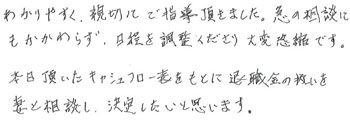 わかりやすく、親切にご指導頂きました。急の相談に
もかかわらず、日程を調整くださり大変恐縮です。
本日頂いたキャッシュフロー表をもとに退職金の扱いを
妻と相談し、決定したいと思います。